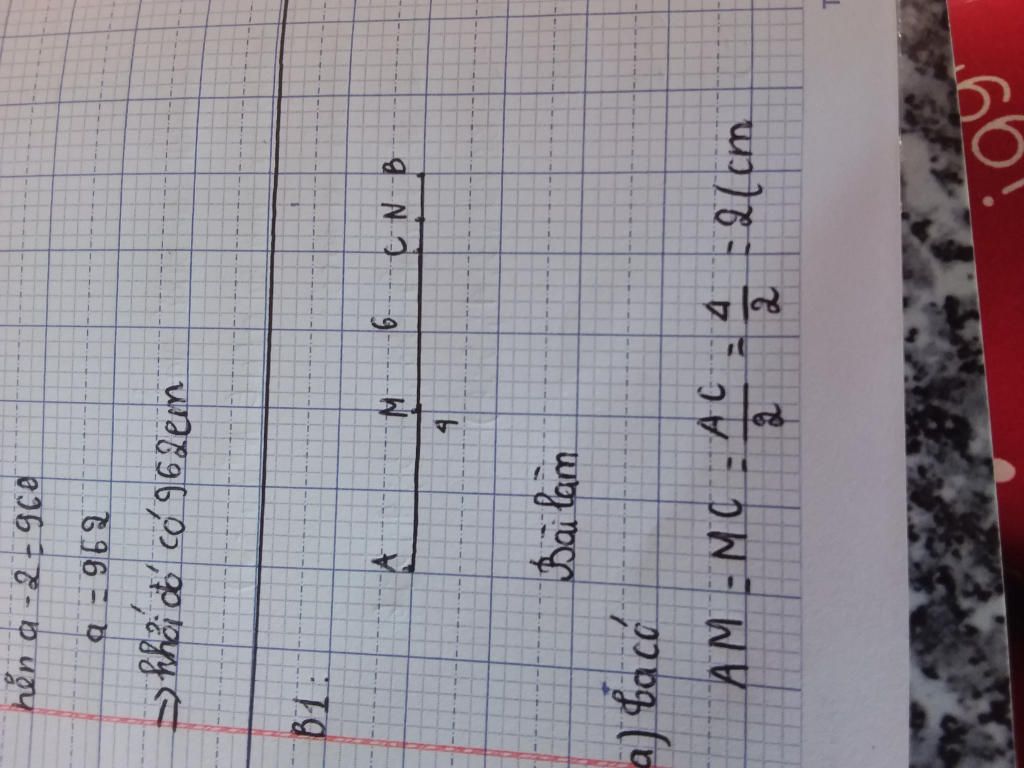 nên a - 2 = 960
a = 962
=> khối đó có 962em
B1:
A M 6 C N B
4
Bài làm
a) Ta có
AM = MC = AC/2 = 4/2 = 2(cm